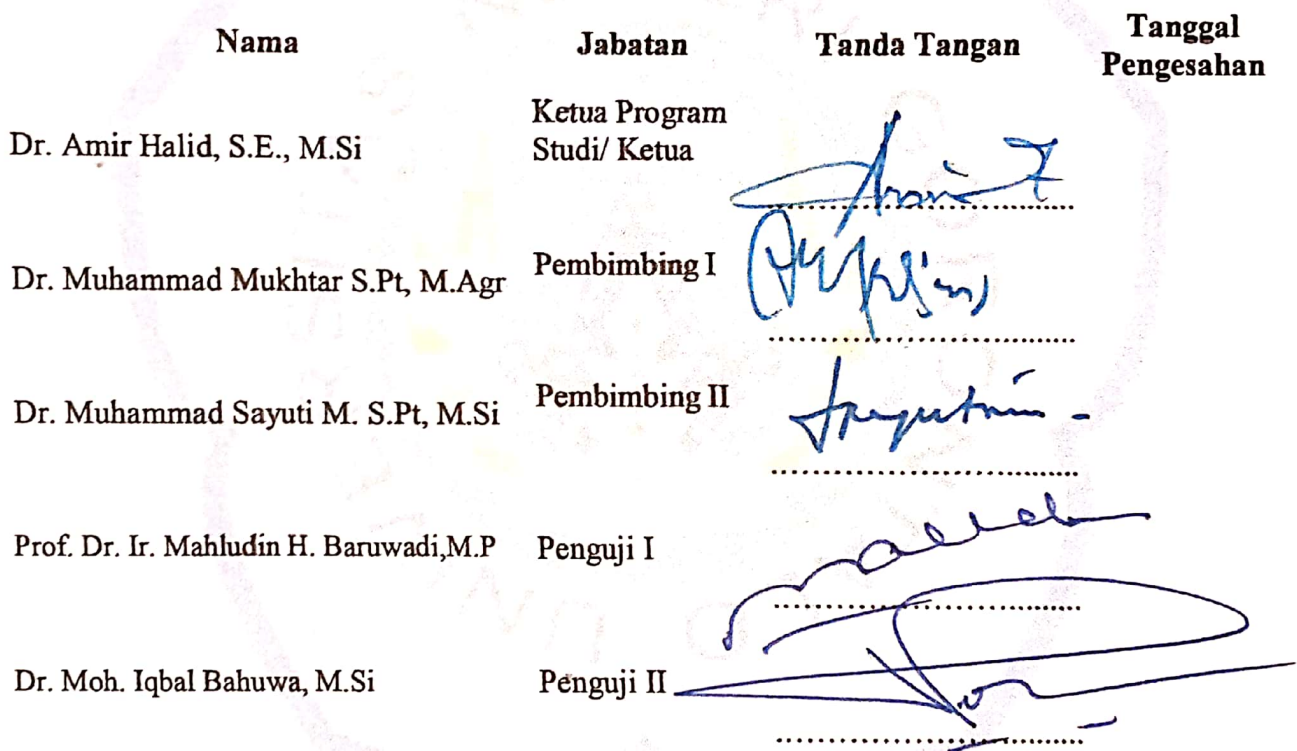 Nama Jabatan Tanda Tangan Tanggal
Pengesahan
Dr. Amir Halid, S.E., M.Si Ketua Program
Studi/ Ketua
Dr. Muhammad Mukhtar S.Pt, M.Agr Pembimbing I
Dr. Muhammad Sayuti M. S.Pt, M.Si Pembimbing II
Prof. Dr. Ir. Mahludin H. Baruwadi,M.P Penguji I
Dr. Moh. Iqbal Bahuwa, M.Si Penguji II